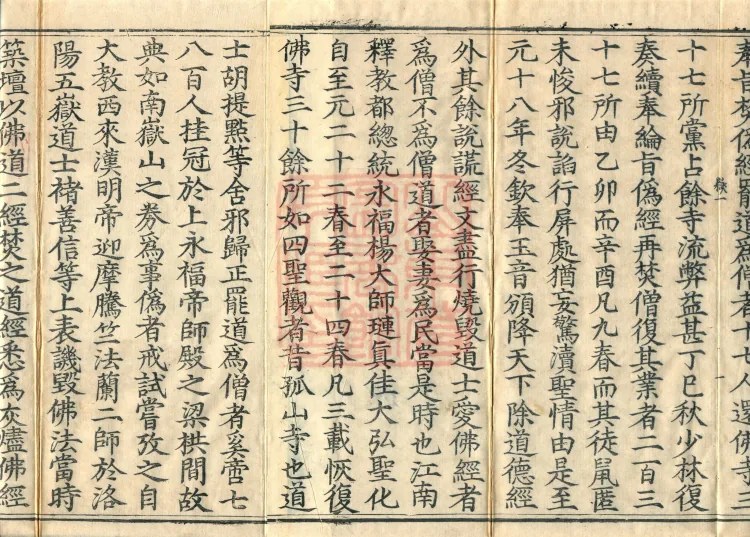 奉旨焚偽經罷道爲僧者十七人還佛寺三
十七所黨占餘寺流弊益甚丁巳秋少林復
奏續奉綸旨偽經再焚僧復其業者二百三
十七所由乙卯而辛酉凡九春而其徒鼠匿
未悛邪說諂行屏處猶妄驚瀆聖情由是至
元十八年冬欽奉玉音頒降天下除道德經
外其餘說謊經文盡行燒毀道士愛佛經者
爲僧不爲僧道者娶妻爲民當是時也江南
釋教都總統永福楊大師璉真佳大弘聖化
自至元二十二春至二十四春凡三載恢復
佛寺三十餘所如四聖觀者昔孤山寺也道
士胡提點等舍邪歸正罷道爲僧者奚啻七
八百人挂冠於上永福帝師殿之梁栱間故
典如南嶽山之券爲事偽者戒試嘗攷之自
大教西來漢明帝迎摩騰竺法蘭二師於洛
陽五嶽道士褚善信等上表譏毀佛法當時
築壇以佛道二經焚之道經悉爲灰燼佛經